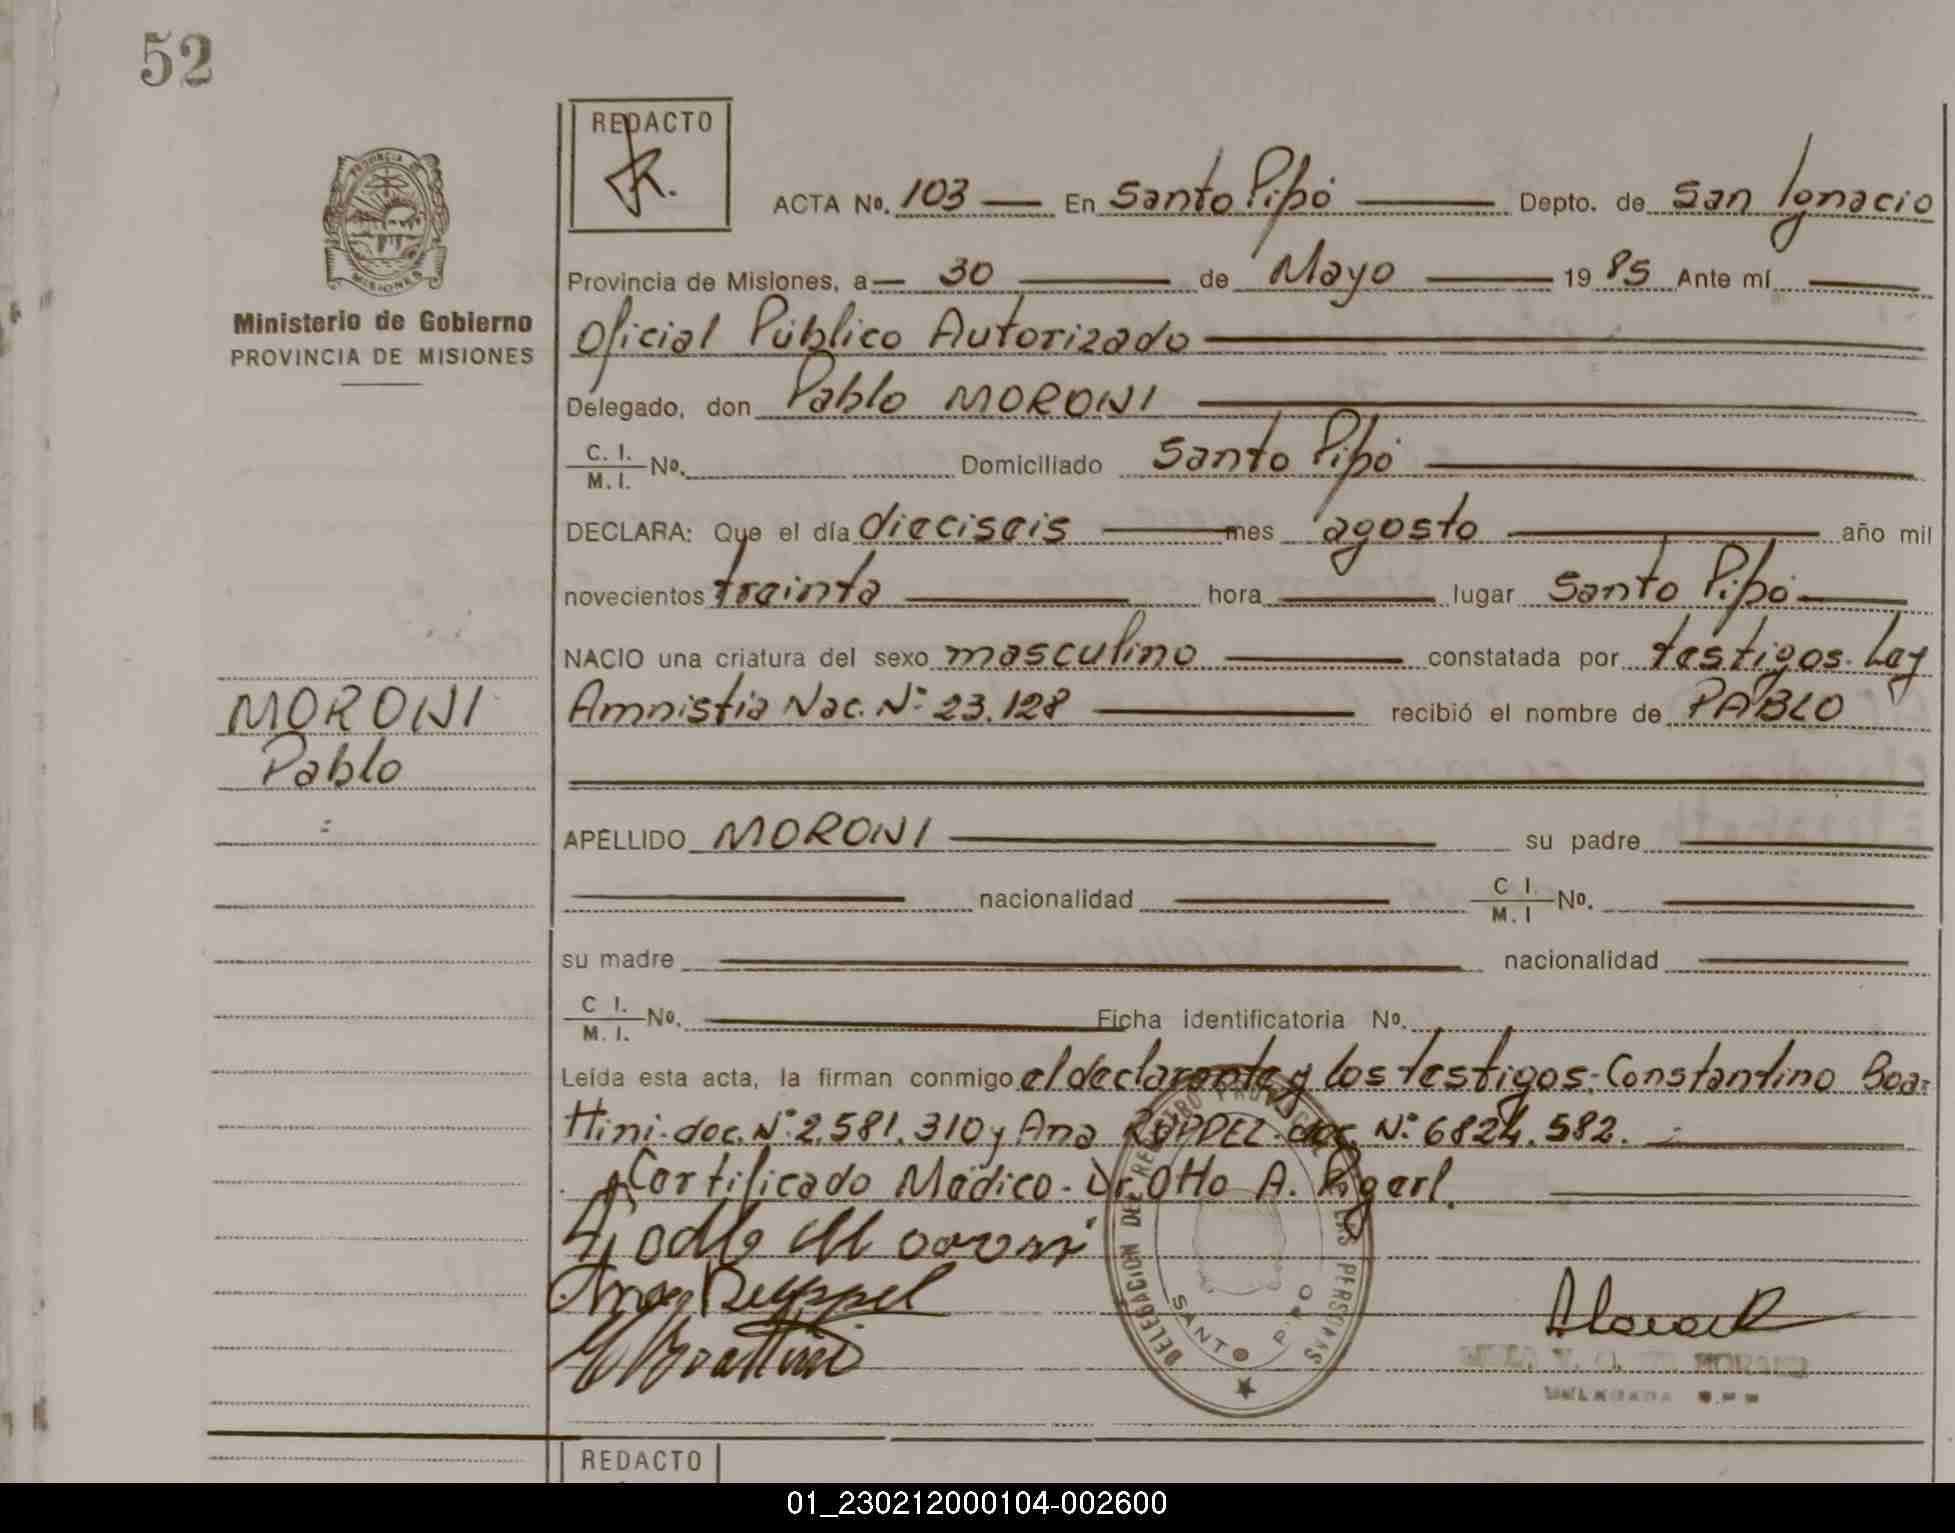 52
REDACTO
R.
PROVINCIA DE
MISIONES
Ministerio de Gobierno
PROVINCIA DE MISIONES
ACTA Nº. 103 — En Santo Pipó — Depto. de San Ignacio
Provincia de Misiones, a — 30 — de Mayo — 19 85 Ante mí —
Oficial Público Autorizado —
Delegado, don Pablo MORONI —
C. I. / M. I. Nº. Domiciliado Santo Pipó —
DECLARA: Que el día dieciseis — mes agosto — año mil
novecientos treinta — hora — lugar Santo Pipó —
NACIO una criatura del sexo masculino — constatada por testigos. Ley
MORONI
Pablo
Amnistia Nac. Nº 23.128 — recibió el nombre de PABLO
APELLIDO MORONI — su padre —
— nacionalidad — C I. / M. I Nº. —
su madre — nacionalidad —
C I. / M. I. Nº. — Ficha identificatoria Nº.
Leída esta acta, la firman conmigo el declarante y los testigos: Constantino Boa=
ttini. doc. Nº 2.581.310 y Ana RUPPEL. doc. Nº 6824.582. —
Certificado Médico - Dr. Otto A. —
Ana Ruppel
DELEGACION DEL REGISTRO PROVINCIAL DE LAS PERSONAS
SANTO PIPO
REDACTO
01_230212000104-002600